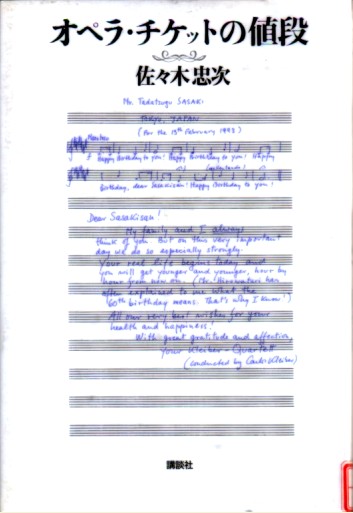 オペラ・チケットの値段
佐々木忠次
Mr. Tadatsugu SASAKI
Tokyo, JAPAN
(For the 13th February 1993)
Happy Birthday to you! Happy Birthday to you! Happy
Birthday, dear Sasakisan! Happy Birthday to you!
Dear Sasakisan!
My family and I always
think of you. But on this very important
day we do so especially strongly.
Your real life begins today and
you will get younger and younger, hour by
hour from now on. (Mr. Hirowatari has
often explained to me what the
60th birthday means. That's why I know!)
All our very best wishes for your
health and happiness!
With great gratitude and affection,
Your Kleiber-Quartett
(conducted by Carlos Kleiber)
講談社